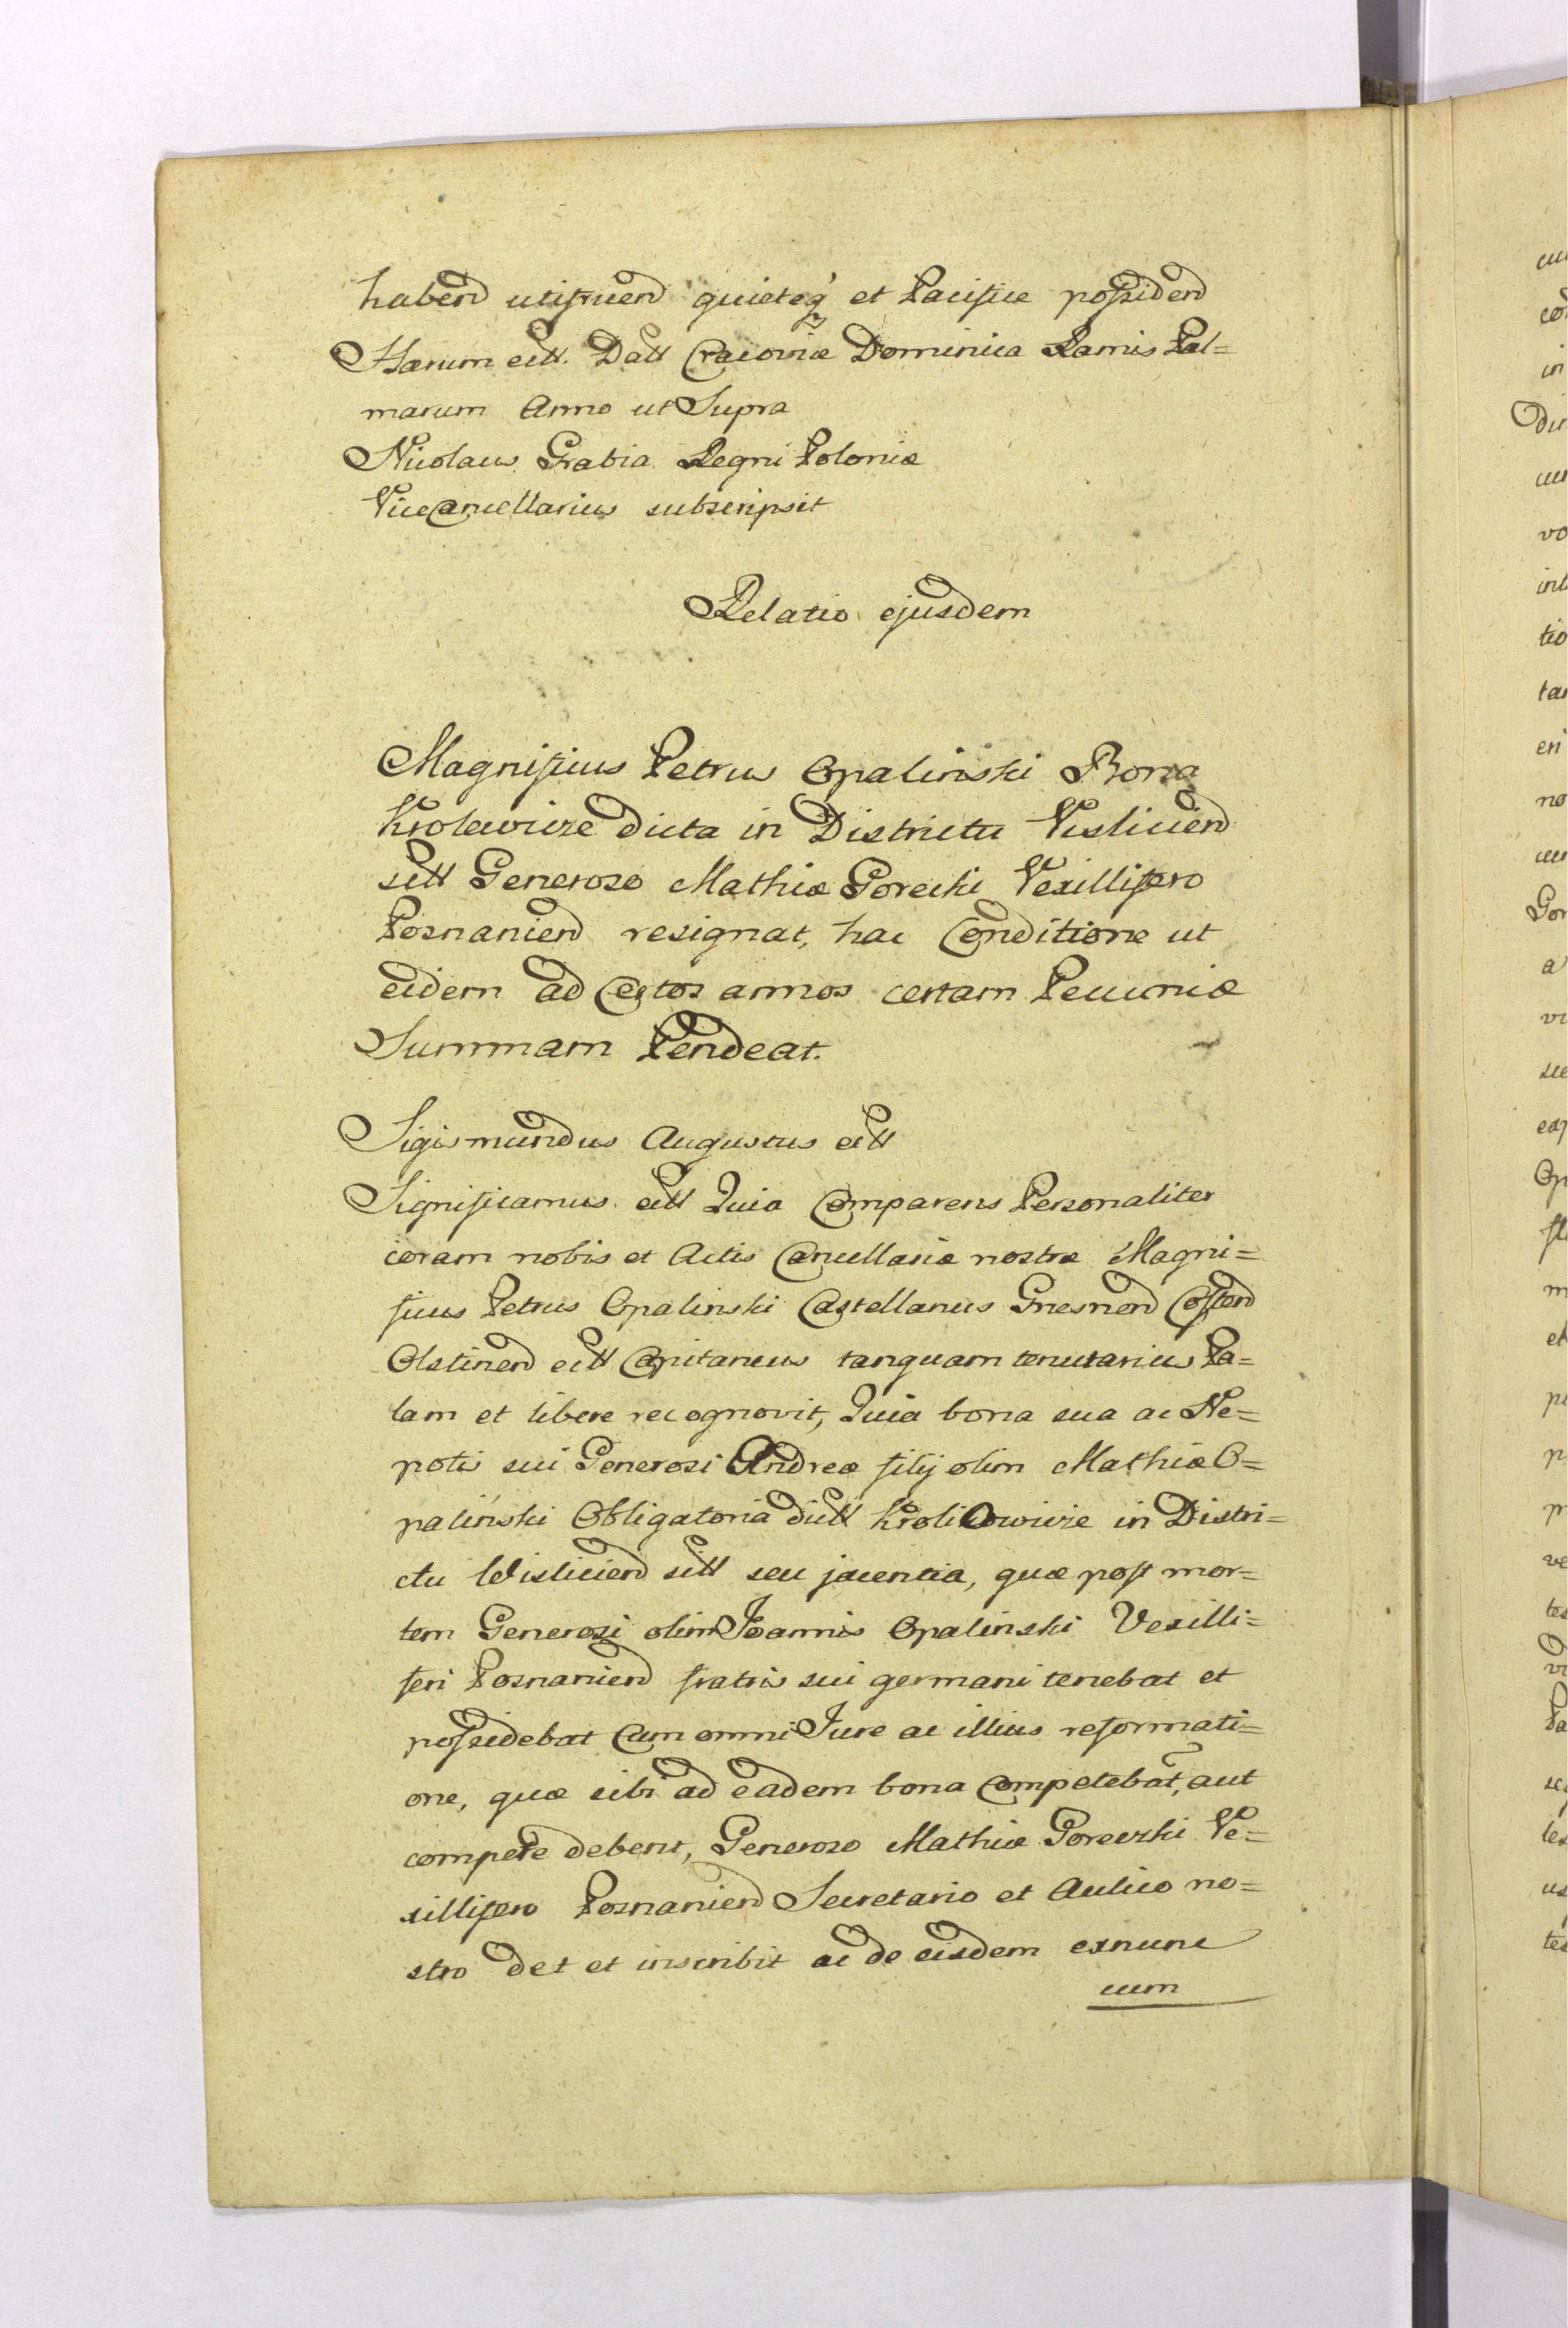 habend utifruend quieteq́ et Pacifice possidend
Harum ett. Datt Cracoviæ Dominica Ramis Pal=
marum Anno ut Supra
Nicolaus Grabia Regni Poloniæ
ViceCancellarius subscripsit
Relatio ejusdem
Magnificus Petrus Opalinski Bona
Krolewicze dicta in Districtu Vislicien
sitt Generoso Mathiæ Gorecki Vexillifero
Posnanien resignat, hac Conditione ut
eidem ad Certos annos certam Pecuniæ
Summam Pendeat.
Sigismundus Augustus ett
Significamus ett Quia Comparens Personaliter
coram nobis et Actis Cancellariæ nostræ Magni=
ficus Petrus Opalinski Castellanus Gnesnen Costen
Olstinen ett Capitaneus tanquam tenutarius Pa=
lam et libere recognovit, Quia bona sua ac Ne=
potis sui Generosi Andreæ filij olim Mathiæ O=
palinski Obligatoria dictt Krolikowicze in Distri=
ctu Wislicien sitt seu jacentia, quæ post mor=
tem Generosi olim Joannis Opalinski Vexilli=
feri Posnanien fratris sui germani tenebat et
possidebat Cum omni Jure ac illius reformati=
one, quæ sibi ad eadem bona Competebat, aut
compete debent, Generoso Mathiæ Goreczki Ve=
xillifero Posnanien Secretario et Aulico no=
stro det et inscribit ac de eisdem exnunc
cum